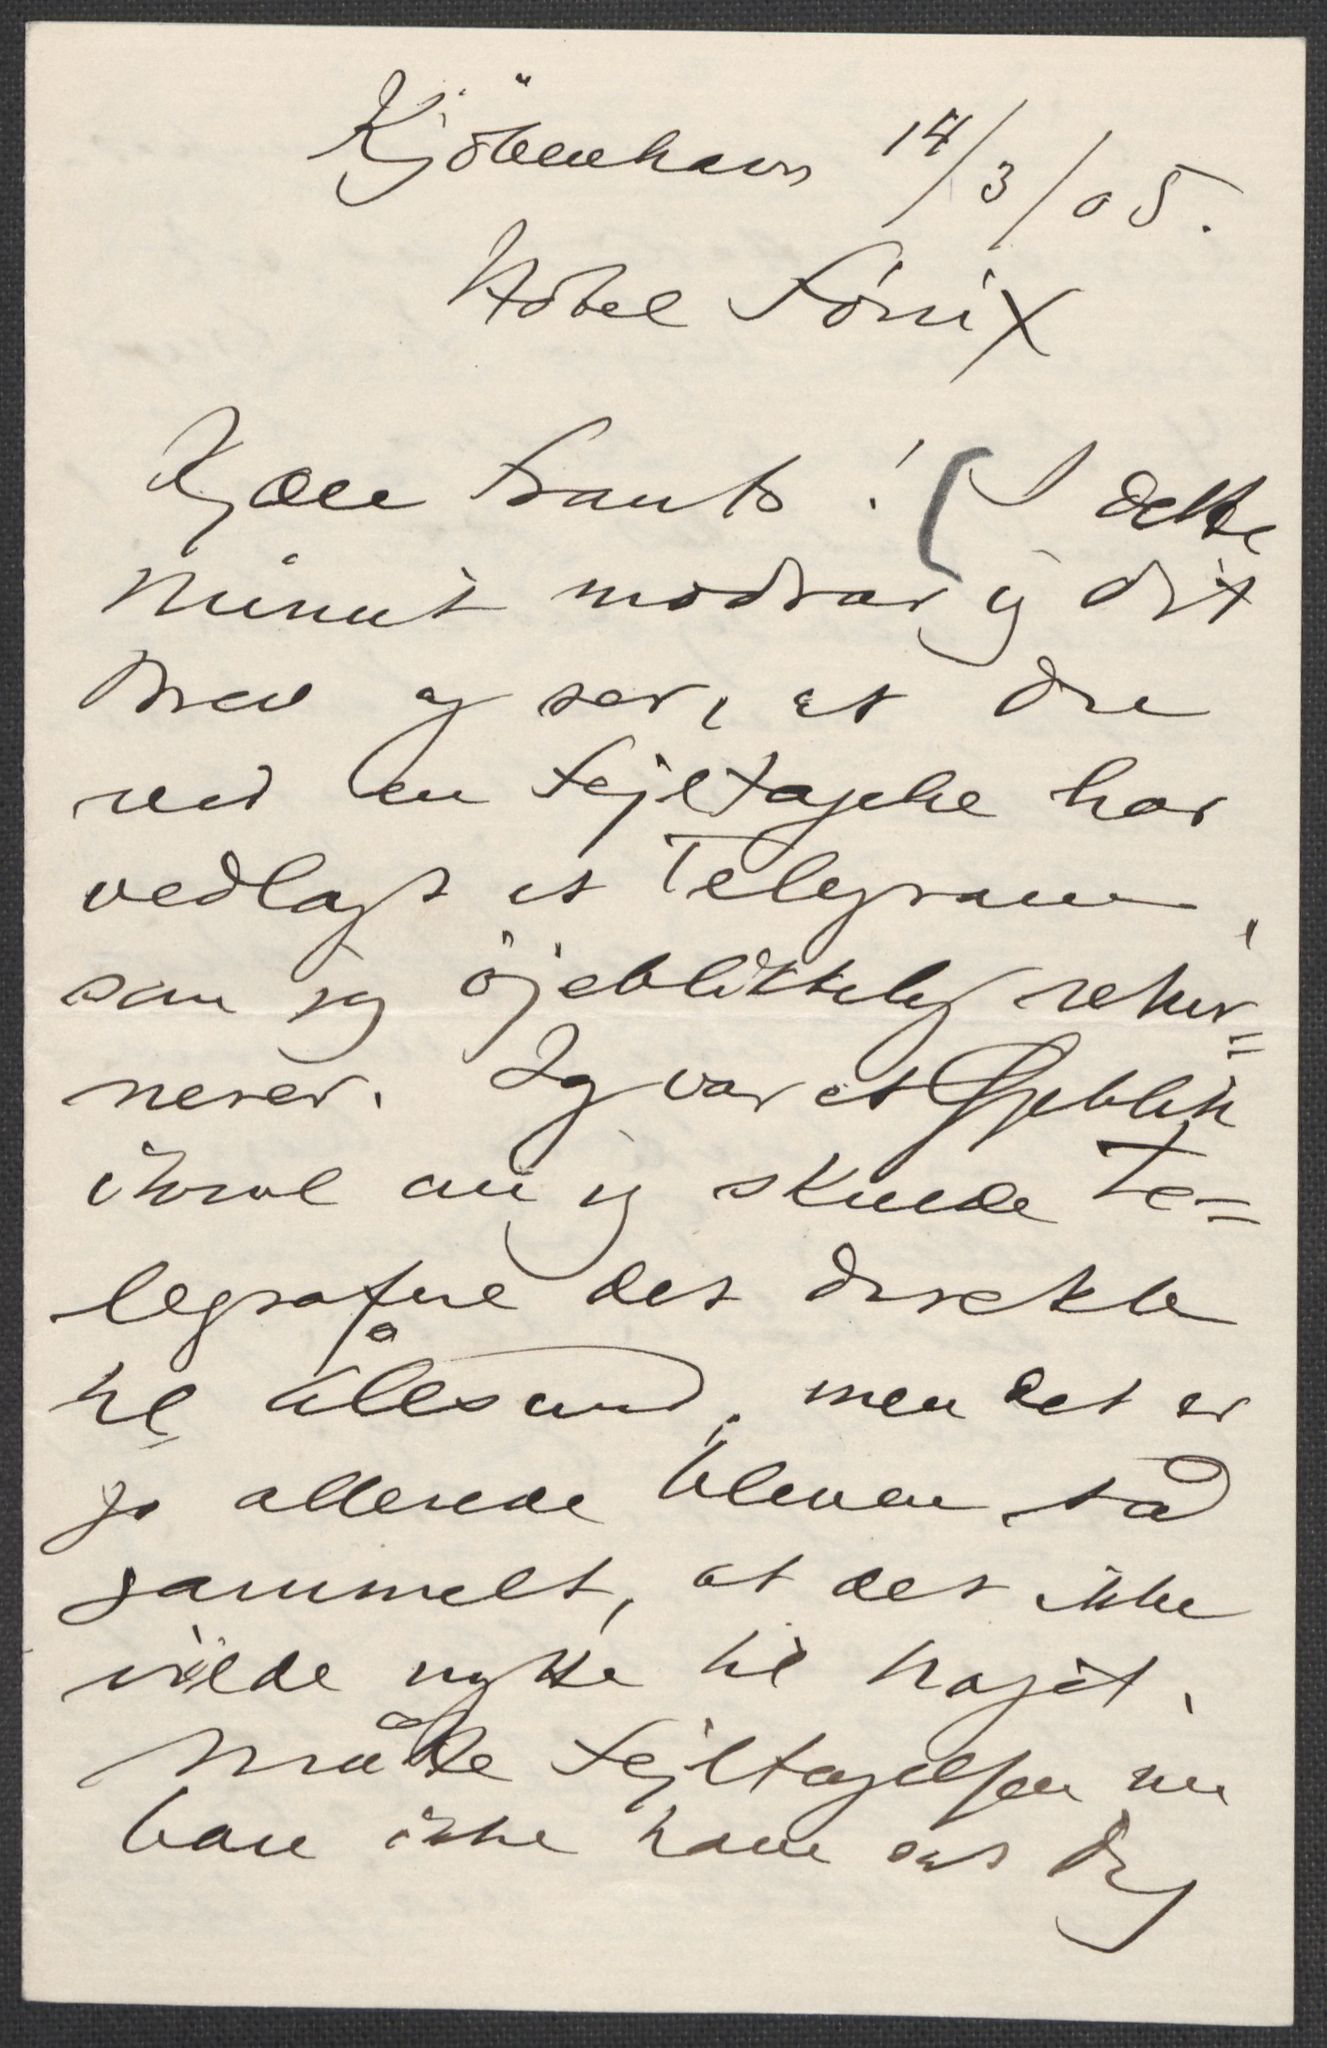 Kjöbenhavn 14/3/05.
Hotel Fönix
Kjære Frants! (I dette
Minut modtar jeg dit
Brev og ser, at du
ved en Fejltagelse har
vedlagt et Telegram,
som jeg öjeblikkelig retur=
nerer. Jeg var et Øjeblik
i tvivl om jeg skulde te=
legrafere det direkte
til Ålesund, men det er
jo allerede bleven så
gammelt, at det ikke
vilde nytte til noget.
Måtte Fejltagelsen nu
bare ikke have sat dig